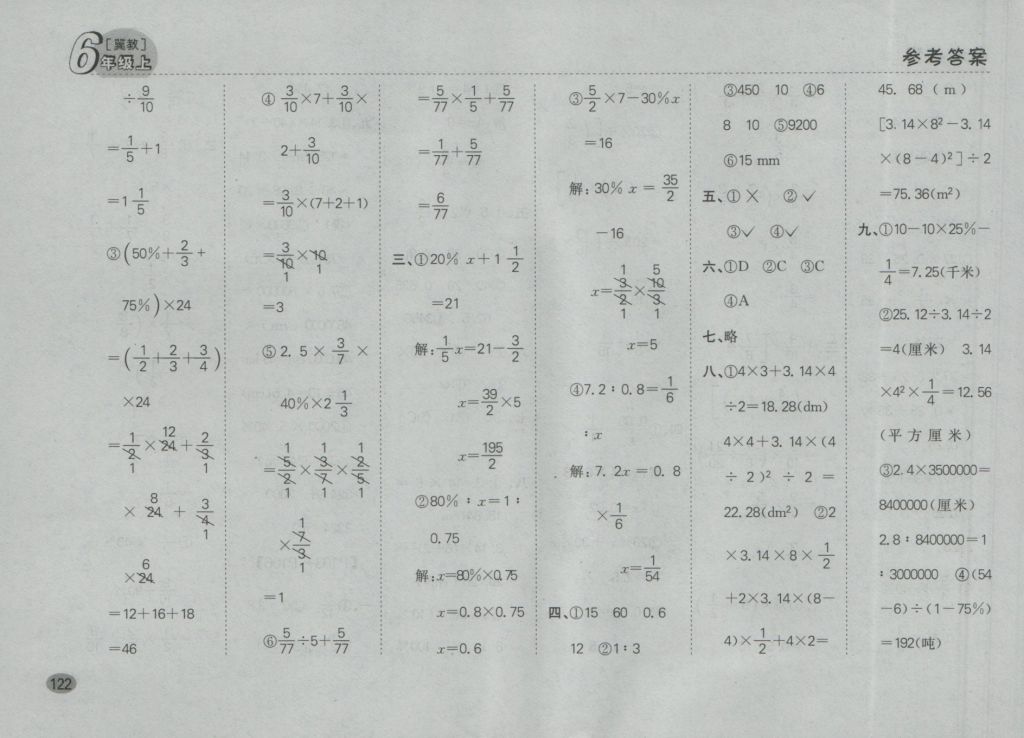 6 [冀教]
年级上
参考答案
÷9/10
=1/5+1
=1 1/5
③(50%+2/3+
75%)×24
=(1/2+2/3+3/4)
×24
=1/2×24+2/3
12
1
1
×24+3/4
8
1
×24
6
=12+16+18
=46
④ 3/10×7+3/10×
2+3/10
=3/10×(7+2+1)
=3/10×10
1
1
=3
⑤ 2.5×3/7×
40%×2 1/3
=5/2×3/7×2/5
1 1 1
1 1 1
×7/3
1
1
=1
⑥5/77÷5+5/77
=5/77×1/5+5/77
=1/77+5/77
=6/77
三、①20% x+1 1/2
=21
解:1/5x=21-3/2
x=39/2×5
x=195/2
②80%∶x=1∶
0.75
解:x=80%×0.75
x=0.8×0.75
x=0.6
③5/2×7-30%x
=16
解:30% x=35/2
-16
x=3/2×10/3
1 5
1 1
x=5
④7.2∶0.8=1/6
∶x
解:7.2x=0.8
×1/6
x=1/54
四、①15 60 0.6
12 ②1∶3
③450 10 ④6
8 10 ⑤9200
⑥15 mm
五、①╳ ②✓
③✓ ④✓
六、①D ②C ③C
④A
七、略
八、①4×3+3.14×4
÷2=18.28(dm)
4×4+3.14×(4
÷2)²÷2=
22.28(dm²) ②2
×3.14×8×1/2
+2×3.14×(8-
4)×1/2+4×2=
45.68(m)
[3.14×8²-3.14
×(8-4)²]÷2
=75.36(m²)
九、①10-10×25%-
1/4=7.25(千米)
②25.12÷3.14÷2
=4(厘米) 3.14
×4²×1/4=12.56
(平方厘米)
③2.4×3500000=
8400000(厘米)
2.8∶8400000=1
∶3000000 ④(54
-6)÷(1-75%)
=192(吨)
122